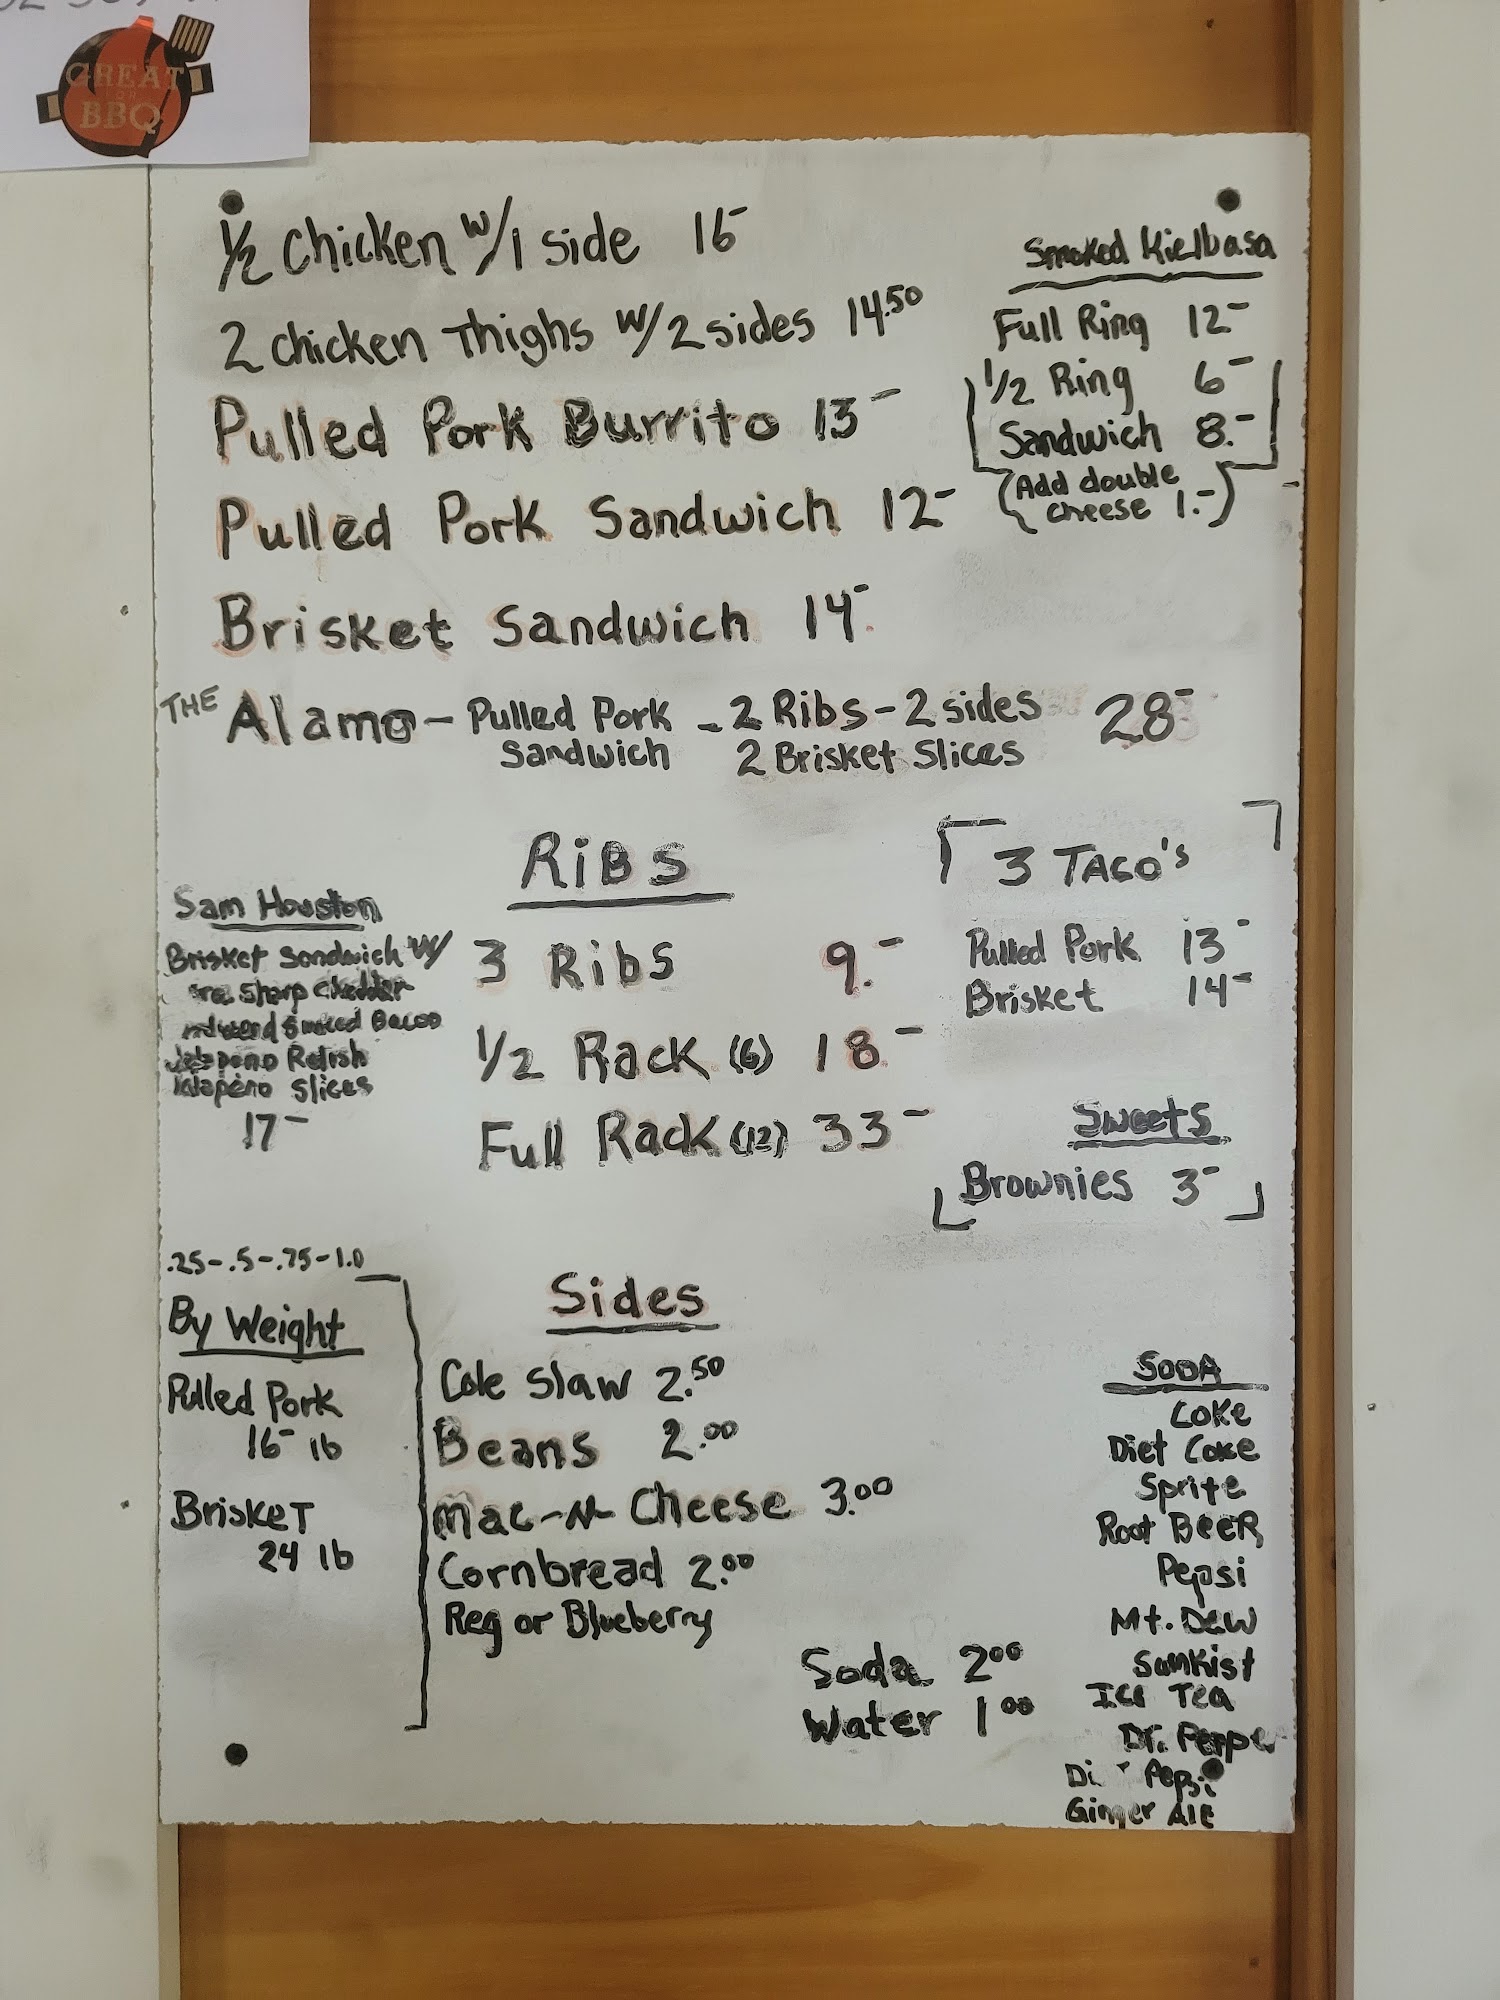 GREAT
FOR
BBQ
1/2 Chicken w/1 side 16-
2 chicken Thighs w/2 sides 14.50
Pulled Pork Burrito 13-
Pulled Pork Sandwich 12-
Brisket Sandwich 14-
Smoked Kielbasa
Full Ring 12-
1/2 Ring 6-
Sandwich 8.-
(Add double
cheese 1.-)
THE Alamo - Pulled Pork - 2 Ribs - 2 sides 28-
Sandwich 2 Brisket Slices
Sam Houston
Brisket Sandwich w/
Sharp Cheddar
Smoked Bacon
Jalapeno Relish
Jalapeno Slices
17-
RiBS
3 Ribs 9.-
1/2 Rack (6) 18-
Full Rack (12) 33-
3 TACO's
Pulled Pork 13-
Brisket 14-
Sweets
Brownies 3-
.25-.5-.75-1.0
By Weight
Pulled Pork
16- lb
BriskeT
24 lb
Sides
Cole Slaw 2.50
Beans 2.00
Mac-N-Cheese 3.00
Cornbread 2.00
Reg or Blueberry
Soda 2.00
Water 1.00
SODA
Coke
Diet Coke
Sprite
Root BeeR
Pepsi
Mt. Dew
Sunkist
Ice Tea
Dr. Pepper
Pepsi
Ginger Ale